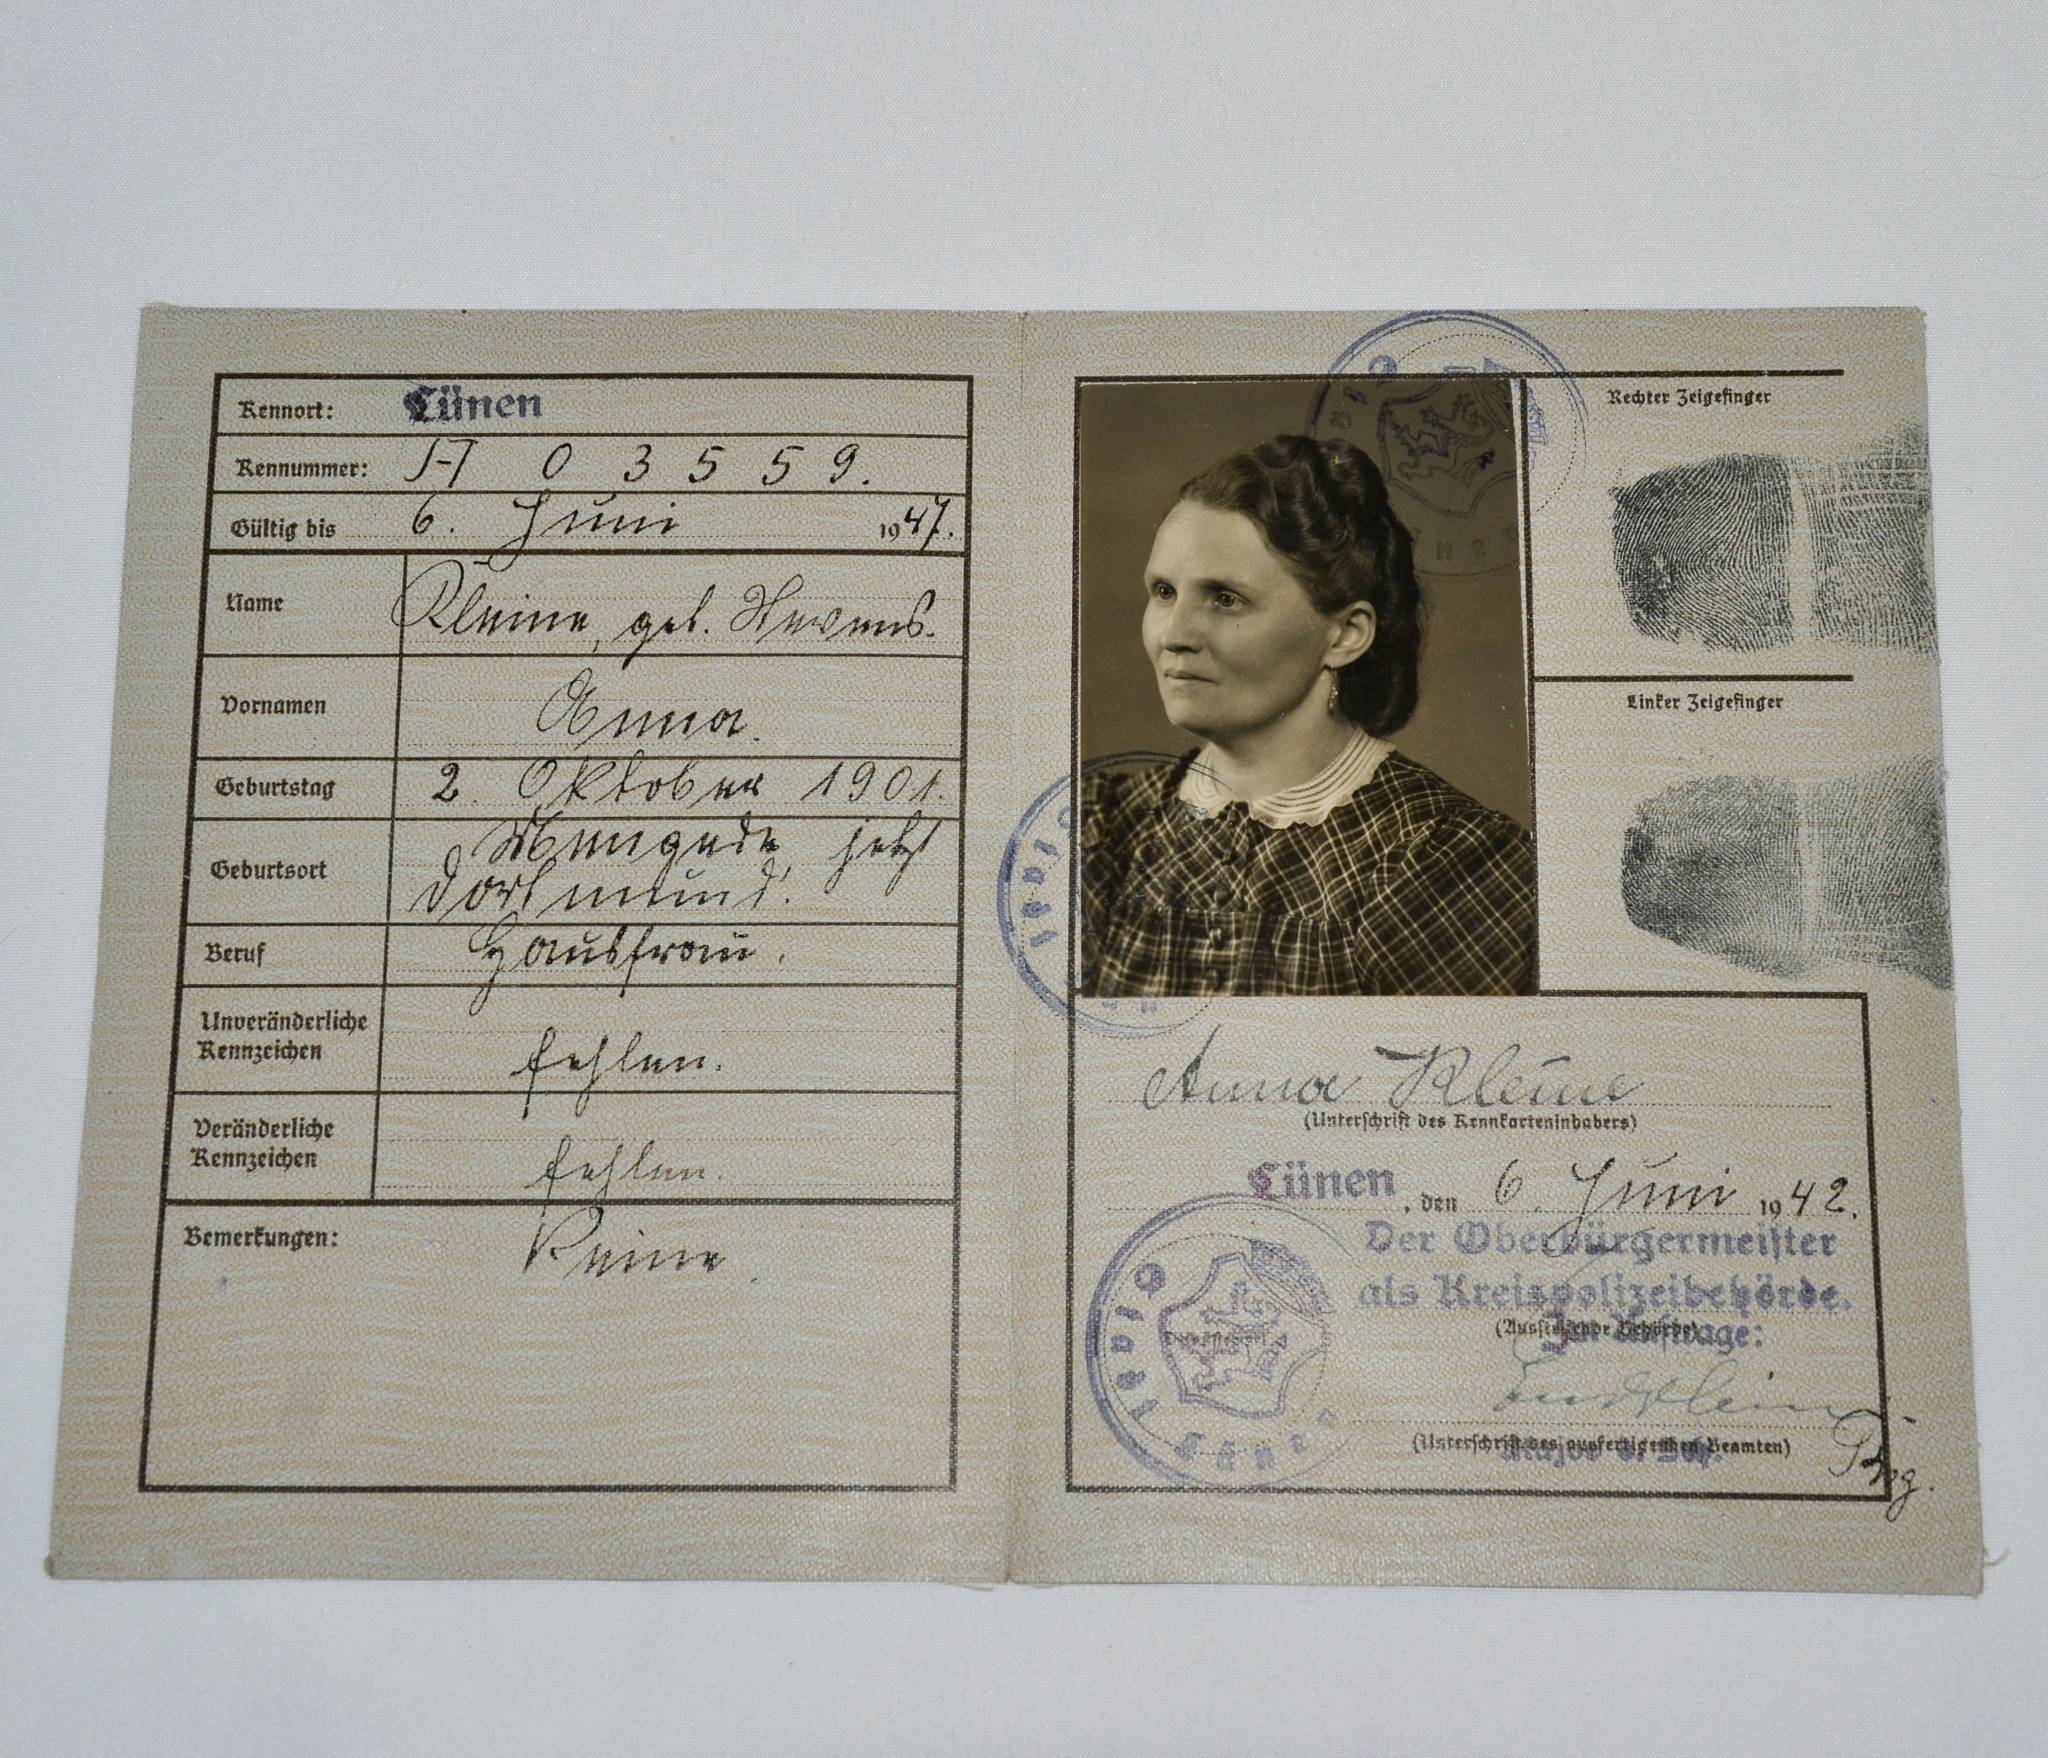 Kennort: Lünen
Kennummer: A 03559.
Gültig bis 6. Juni 1947.
Name Kleine, geb. Stevens.
Vornamen Anna.
Geburtstag 2. Oktober 1901.
Geburtsort Mengede, jetzt
Dortmund.
Beruf Hausfrau.
Unveränderliche
Kennzeichen fehlen.
Veränderliche
Kennzeichen fehlen.
Bemerkungen: Keine
Rechter Zeigefinger
Linker Zeigefinger
Anna Kleine
(Unterschrift des Kennkarteninhabers)
Lünen, den 6. Juni 1942.
Der Oberbürgermeister
als Kreispolizeibehörde.
(Ausstellende Behörde)
Im Auftrage:
(Unterschrift des ausfertigenden Beamten)
Major d. Sch.
Stadt Lünen